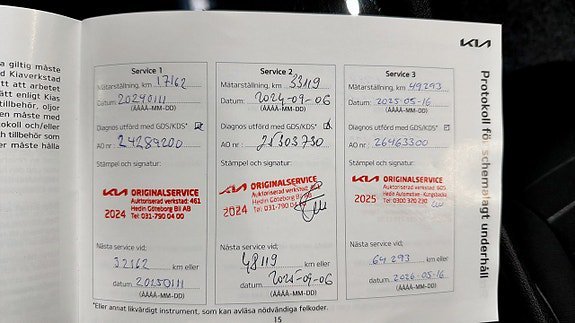 a giltig måste
d Kiaverkstad
att arbetet
ätt enligt Kias
tillbehör, oljor
en måste med
okoll och/eller
h tillbehör som
er måste hålla
KIA
Protokoll för schemalagt underhåll
Service 1
Mätarställning, km 17162
Datum: 20240111
(ÅÅÅÅ-MM-DD)
Diagnos utförd med GDS/KDS*
AO nr: 24289200
Stämpel och signatur:
KIA ORIGINALSERVICE
Auktoriserad verkstad: 461
Hedin Göteborg Bil AB
2024 Tel: 031-790 04 00
Nästa service vid;
32162 km eller
datum 20250111
(ÅÅÅÅ-MM-DD)
Service 2
Mätarställning, km 33119
Datum: 2024-09-06
(ÅÅÅÅ-MM-DD)
Diagnos utförd med GDS/KDS*
AO nr: 25303730
Stämpel och signatur:
KIA ORIGINALSERVICE
Auktoriserad verkstad: 461
Hedin Göteborg Bil AB
2024 Tel: 031-790 04
Nästa service vid;
48119 km eller
datum 2025-09-06
(ÅÅÅÅ-MM-DD)
Service 3
Mätarställning, km 49293
Datum: 2025-05-16
(ÅÅÅÅ-MM-DD)
Diagnos utförd med GDS/KDS*
AO nr: 26463300
Stämpel och signatur:
KIA ORIGINALSERVICE
Auktoriserad verkstad: 605
Hedin Automotive - Kungsbacka
2025 Tel: 0300 320 230
Nästa service vid;
64 293 km eller
datum 2026-05-16
(ÅÅÅÅ-MM-DD)
*Eller annat likvärdigt instrument, som kan avläsa nödvändiga felkoder.
15